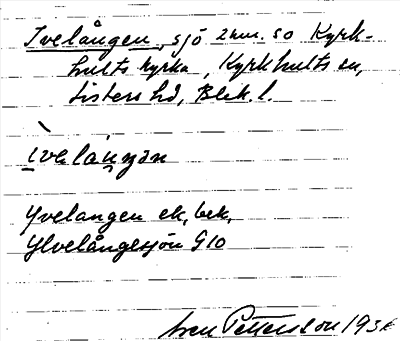 Ivelången, sjö 2 km. so Kyrk-
hults kyrka, Kyrkhults sn,
Listers hd, Blek. l.
ìvəláŋən
Yvelangen ek, bek,
Ylvelångesjön G10
Sven Petterson 193